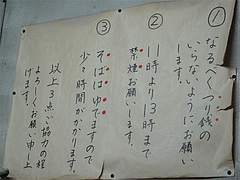 ①
なるべくつり銭の
いらないようにお願い
します。
②
11時より13時まで
禁煙お願いします。
③
そばはゆでますので
少々時間がかかります。
以上3点ご協力の程
よろしくお願い申し上
げます。